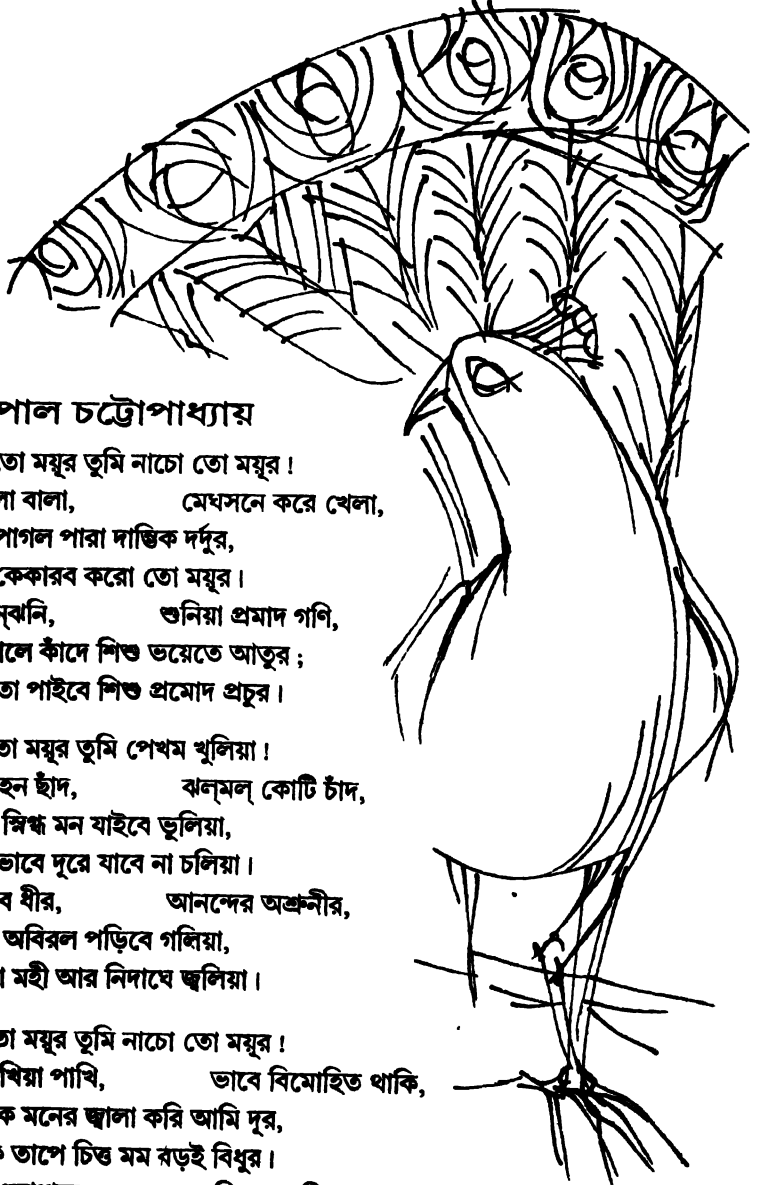 পাল চট্টোপাধ্যায়
তো ময়ূর তুমি নাচো তো ময়ূর !
লা বালা, মেঘসনে করে খেলা,
পাগল পারা দাম্ভিক দর্দুর,
কেকারব করো তো ময়ূর।
ন্‌ঝনি, শুনিয়া প্রমাদ গণি,
লে কাঁদে শিশু ভয়েতে আতুর ;
তা পাইবে শিশু প্রমোদ প্রচুর।
তা ময়ূর তুমি পেখম খুলিয়া !
হন ছাঁদ, ঝল্‌মল্‌ কোটি চাঁদ,
স্নিগ্ধ মন যাইবে ভুলিয়া,
ভাবে দূরে যাবে না চলিয়া।
ব ধীর, আনন্দের অশ্রুনীর,
অবিরল পড়িবে গলিয়া,
মহী আর নিদাঘে জ্বলিয়া।
তা ময়ূর তুমি নাচো তো ময়ূর !
খিয়া পাখি, ভাবে বিমোহিত থাকি,
ক মনের জ্বালা করি আমি দূর,
তাপে চিত্ত মম বড়ই বিধুর।